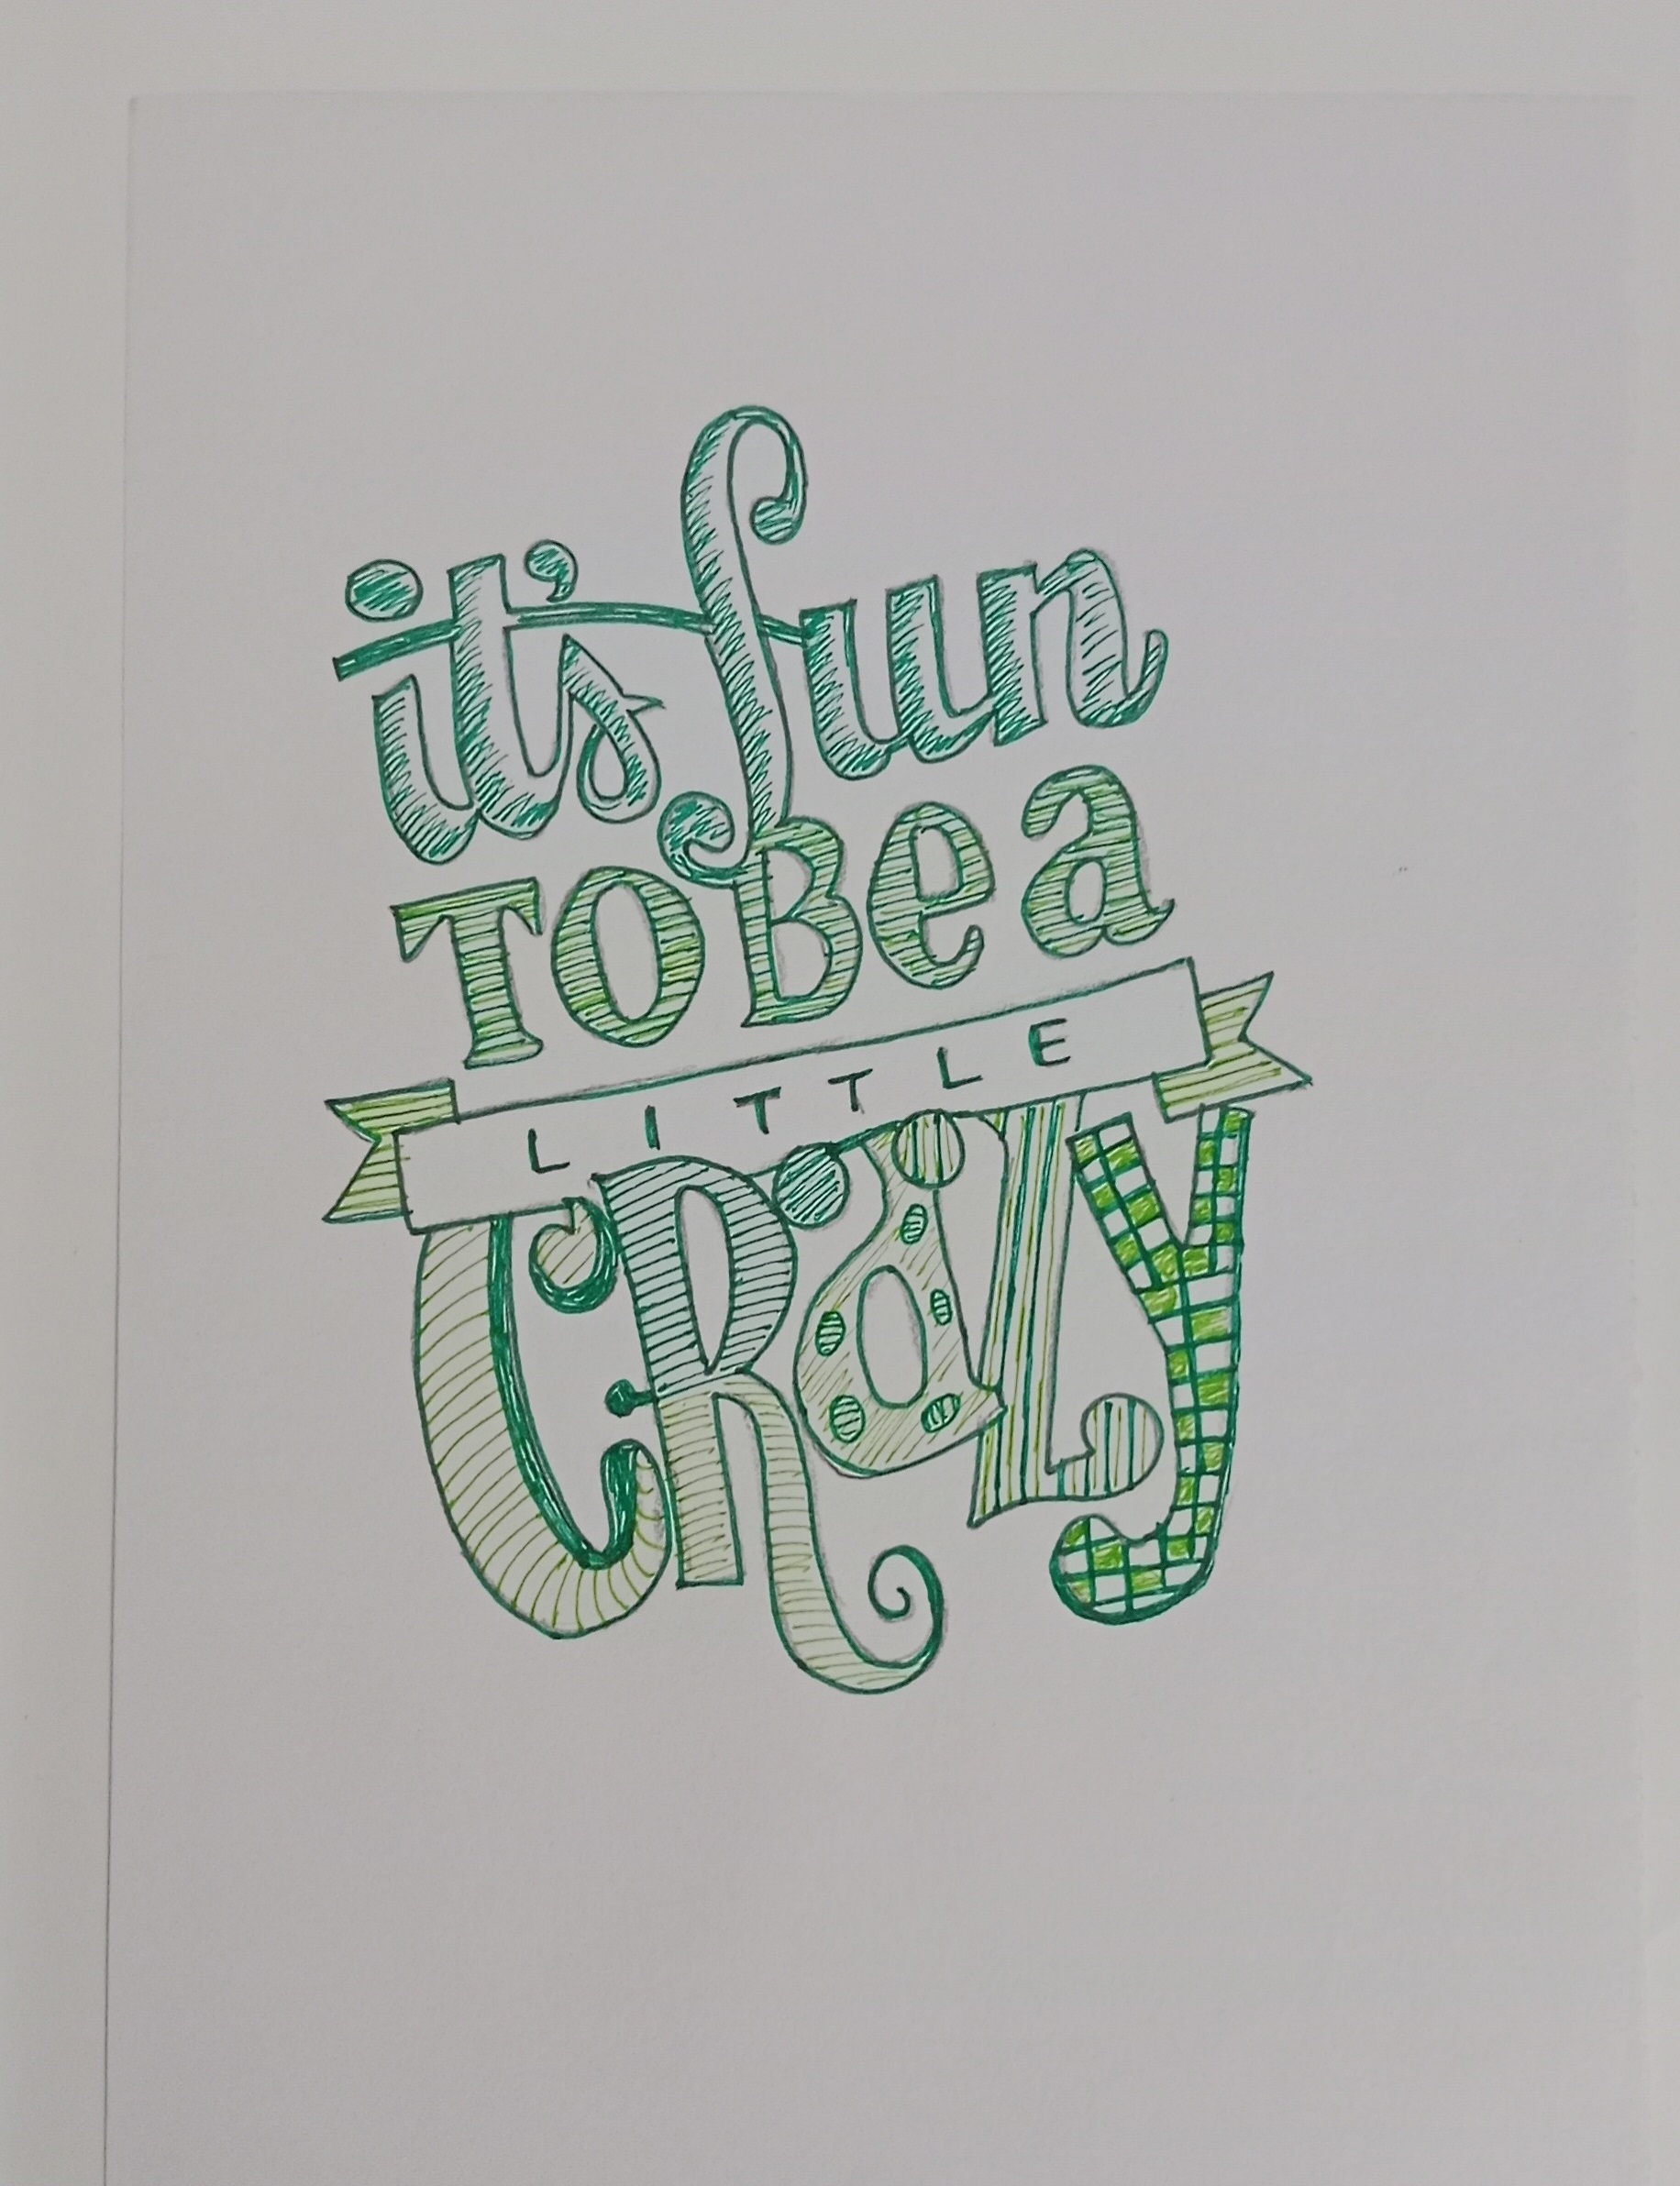 it's fun
TO Be a
LITTLE
CRaZy